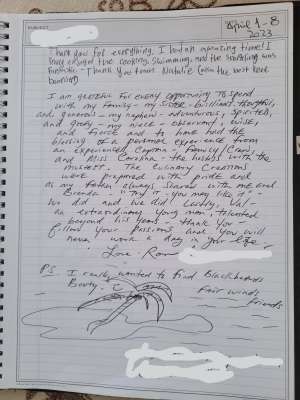 SUBJECT
April 1-8
2023
Thank you for everything, I had an amazing time! I
truly enjoyed the cooking, swimming, and the snorkeling was
fantastic - Thank you
Natalie
I am grateful for every opportunity to spend
with my family - my sister - brilliant, thoughtful,
and generous - my nephew - adventurous, spirited,
and goofy - my niece - observant, wise,
and fierce and to have had the
blessing of a personal experience from
an experienced Captain - Family / Capt.
and Miss Carolina - the hostess with the
mostest. The Culinary Creations
were prepared with pride and
as my father always shared with me and
Brenda - "try it - you may like it" -
We did and we did! Lastly, Val -
an extraordinary young man, talented
beyond his years - thank you -
Follow your passions and you will
never work a day in your life.
Love - Ron
P.S. I really wanted to find Blackbeards
Booty.
Fair winds
friends